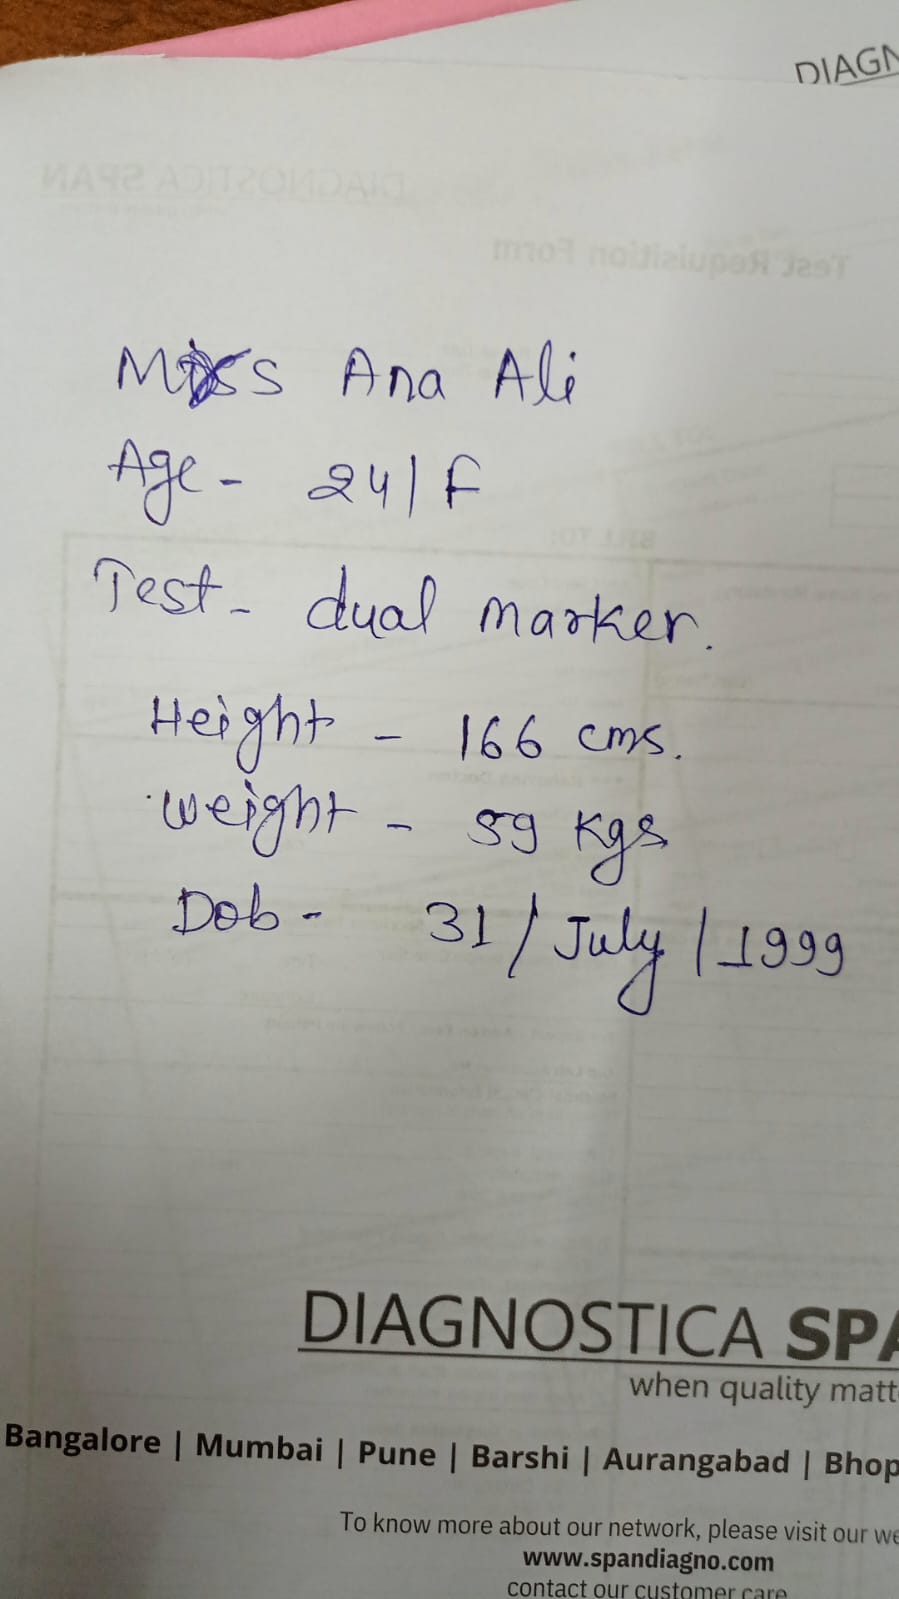 DIAGN
DIAGNOSTICA SPAN
Test Requisition Form
Miss Ana Ali
Age - 24/F
Test - dual marker.
Height - 166 cms.
weight - 59 kgs
Dob - 31/July/1999
BILL TO:
DIAGNOSTICA SPA
when quality matt
Bangalore | Mumbai | Pune | Barshi | Aurangabad | Bhop
To know more about our network, please visit our we
www.spandiagno.com
contact our customer care